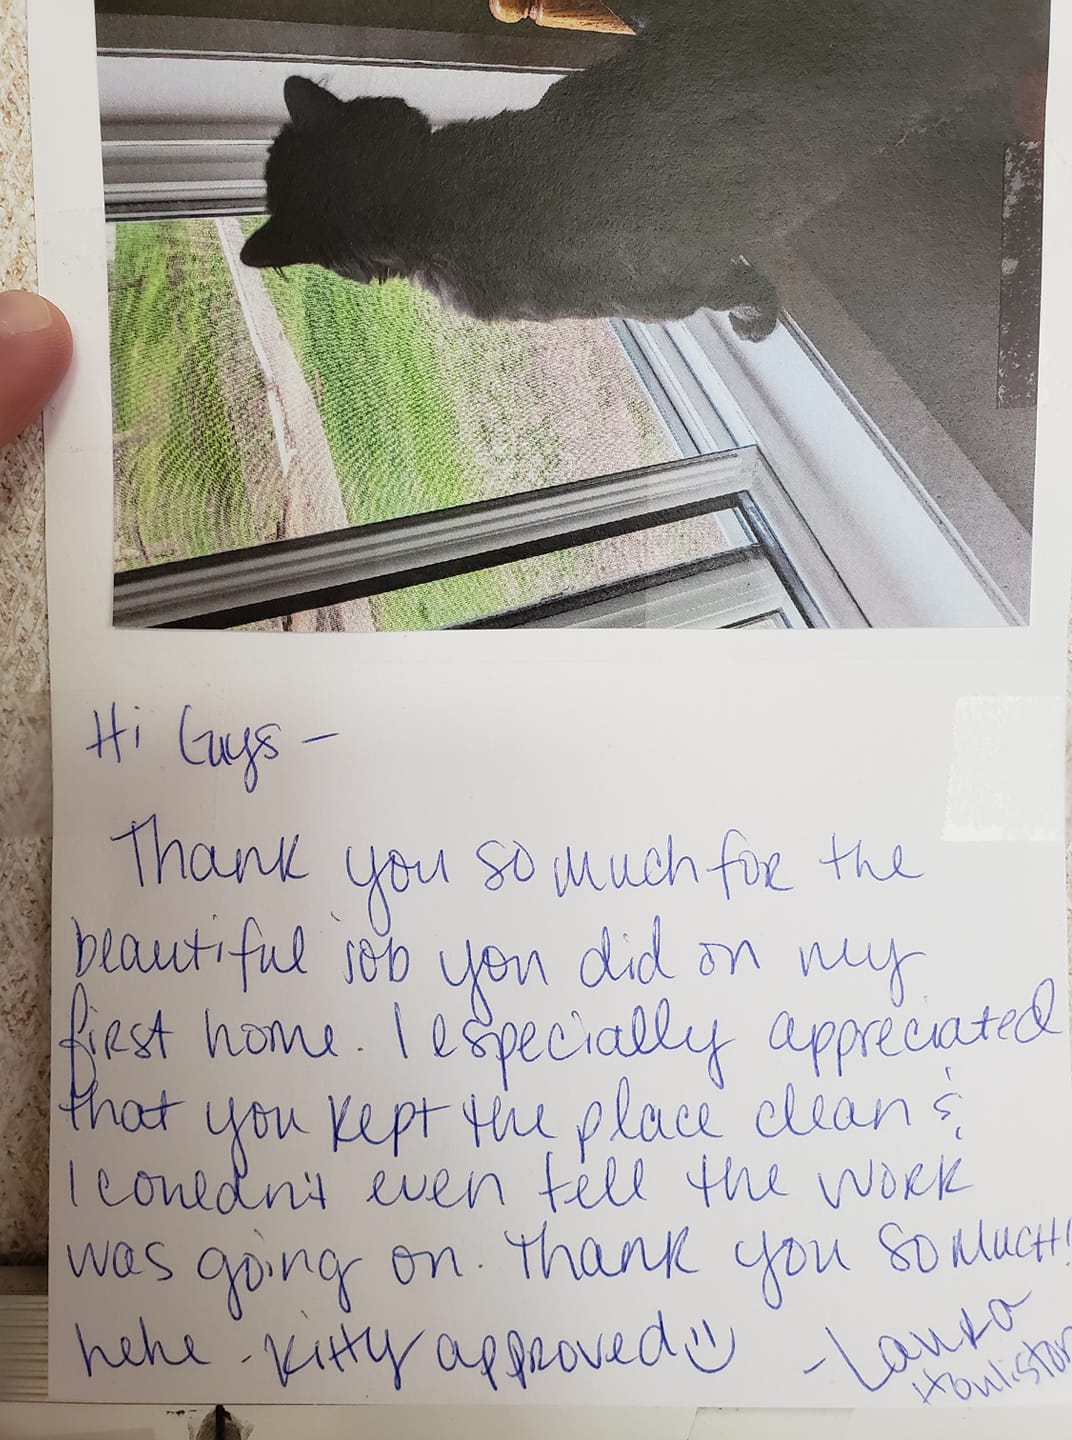 Hi Guys -
Thank you so much for the
beautiful job you did on my
first home. I especially appreciated
that you kept the place clean &
I couldn't even tell the work
was going on. Thank you so much!
hehe - kitty approved :) - Laura